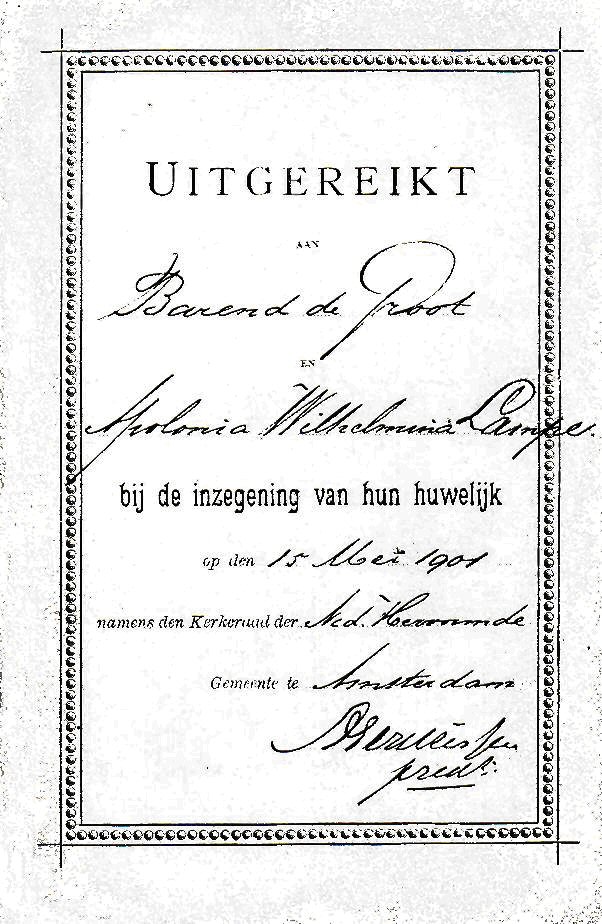 UITGEREIKT
AAN
Barend de Groot
EN
Apolonia Wilhelmina Lampe.
bij de inzegening van hun huwelijk
op den 15 Mei 1901
namens den Kerkeraad der Ned. Hervormde
Gemeente te Amsterdam
predt.